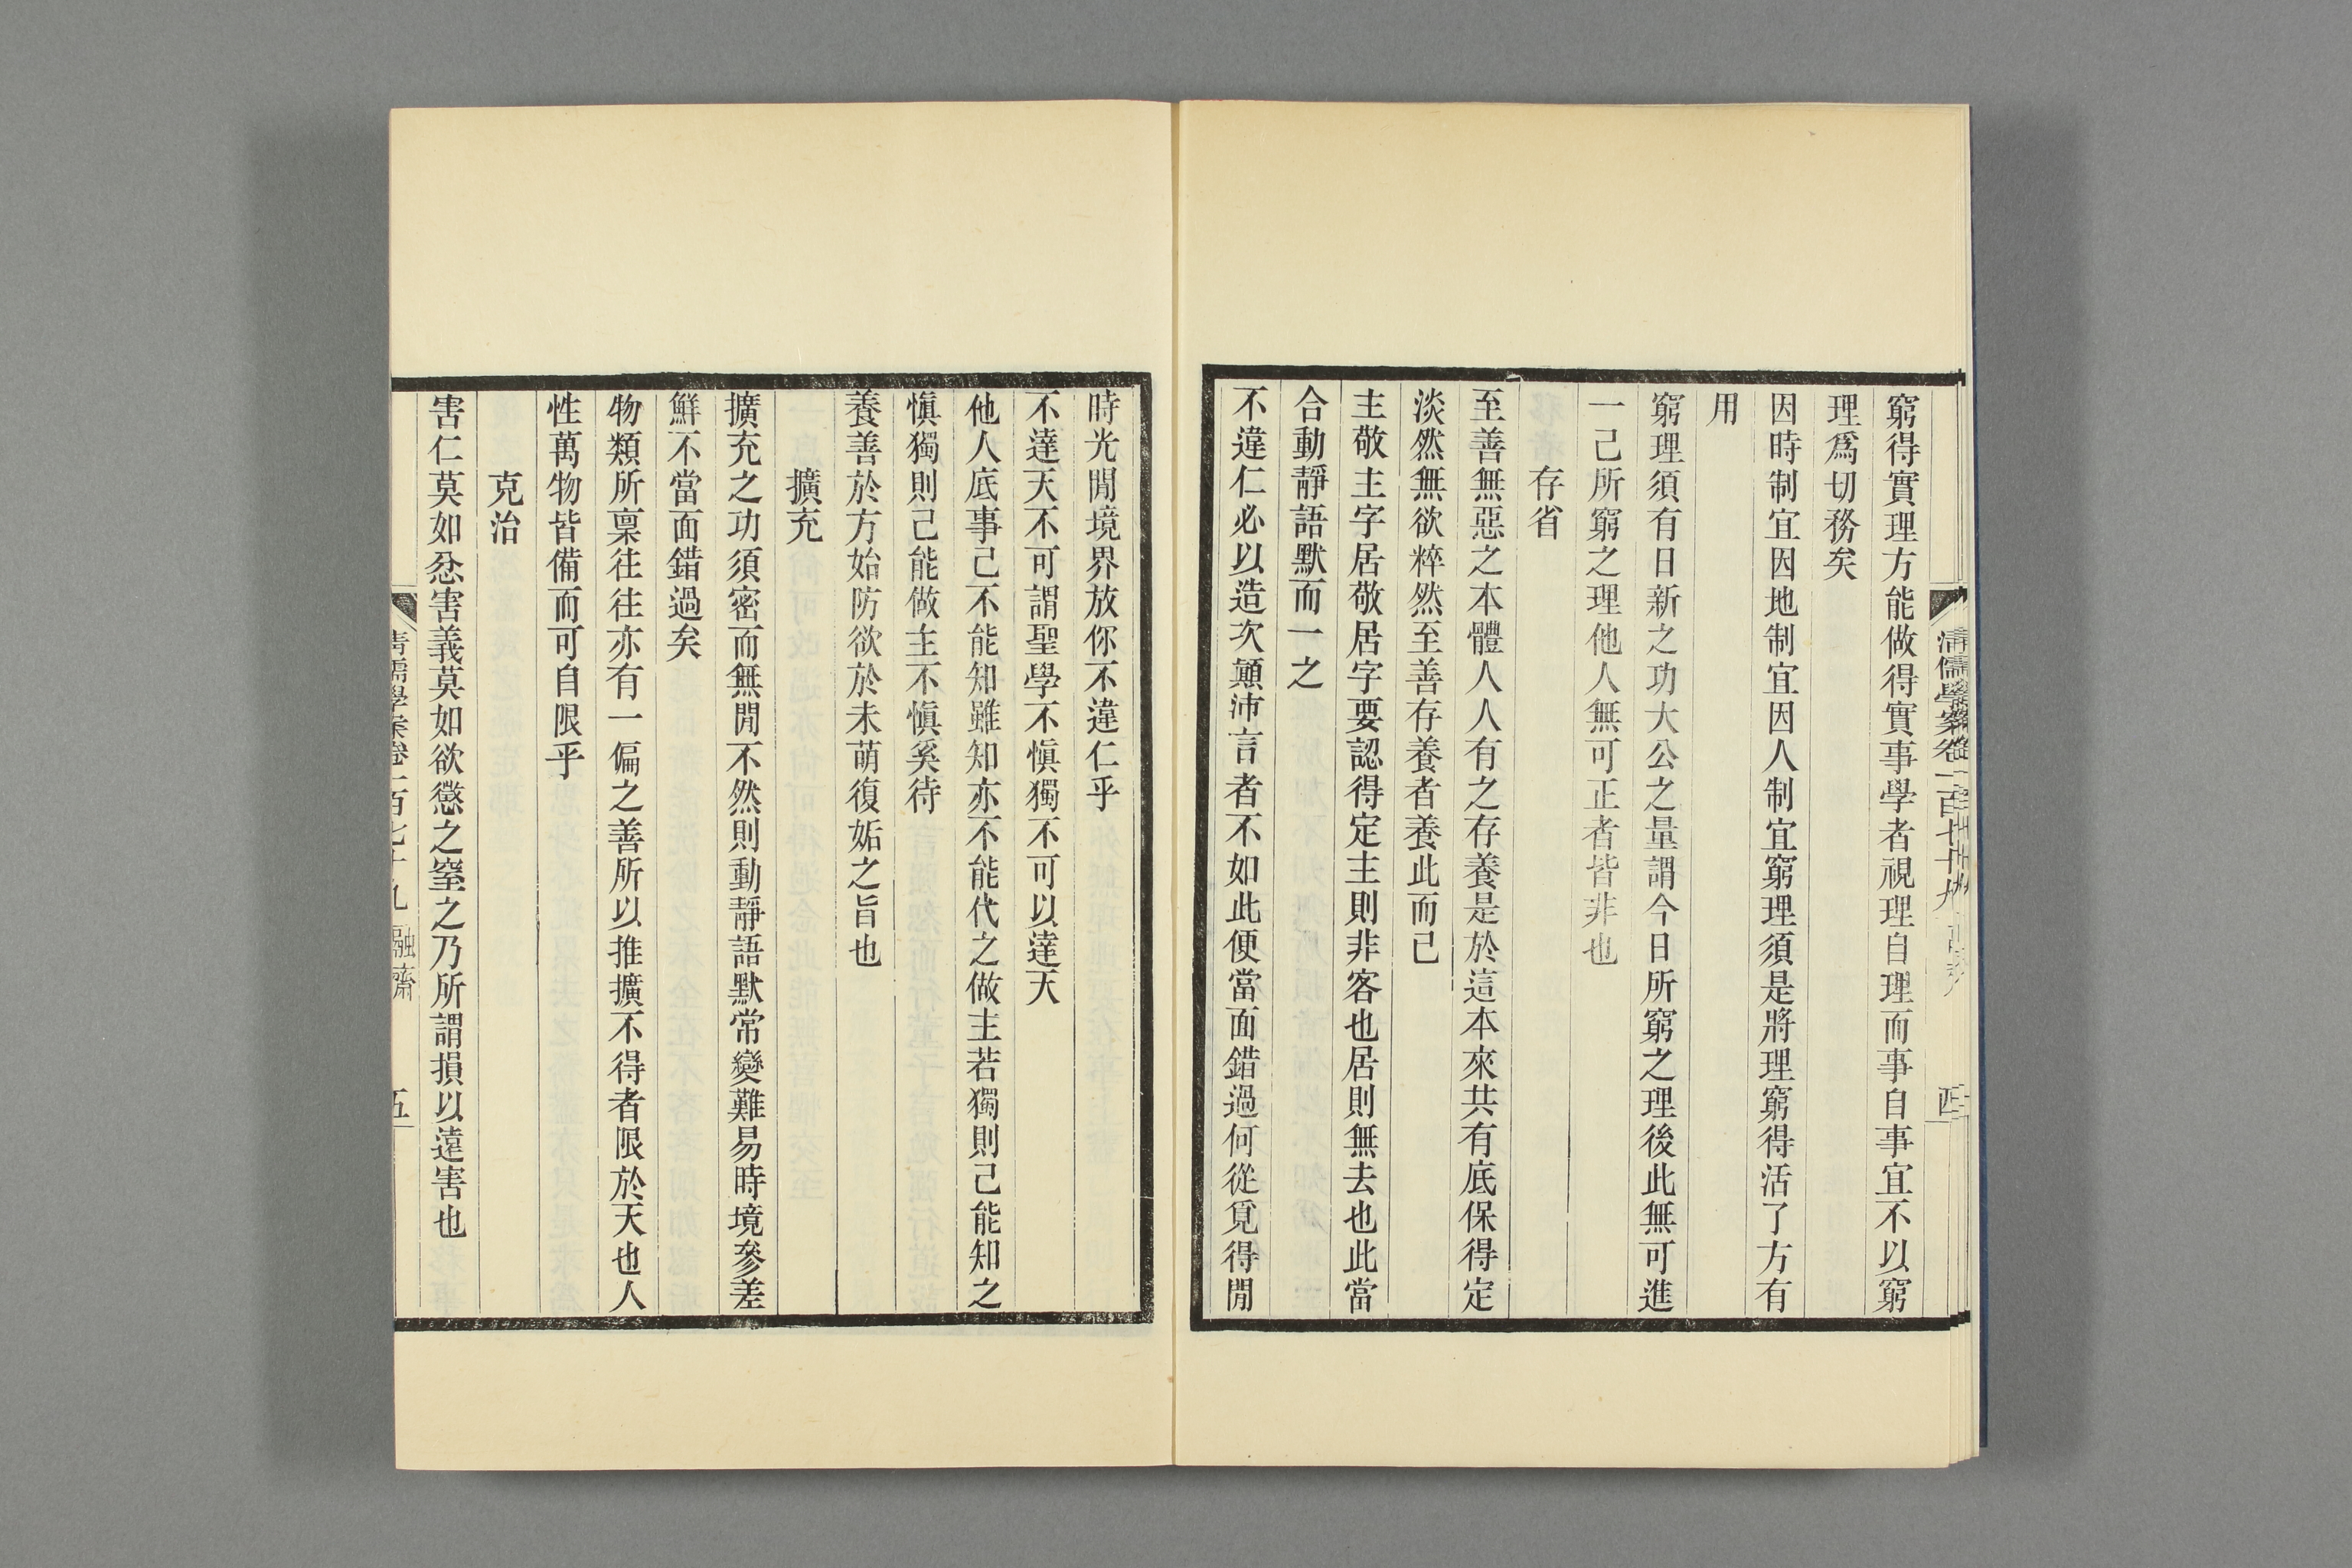 窮得實理方能做得實事學者視理自理而事自事宜不以窮
理爲切務矣
因時制宜因地制宜因人制宜窮理須是將理窮得活了方有
用
窮理須有日新之功大公之量謂今日所窮之理後此無可進
一己所窮之理他人無可正者皆非也
存省
至善無惡之本體人人有之存養是於這本來共有底保得定
淡然無欲粹然至善存養者養此而已
主敬主字居敬居字要認得定主則非客也居則無去也此當
合動靜語默而一之
不違仁必以造次顛沛言者不如此便當面錯過何從覓得閒
時光閒境界放你不違仁乎
不達天不可謂聖學不愼獨不可以達天
他人底事己不能知雖知亦不能代之做主若獨則己能知之
愼獨則己能做主不愼奚待
養善於方始防欲於未萌復姤之旨也
擴充
擴充之功須密而無閒不然則動靜語默常變難易時境參差
鮮不當面錯過矣
物類所稟往往亦有一偏之善所以推擴不得者限於天也人
性萬物皆備而可自限乎
克治
害仁莫如忿害義莫如欲懲之窒之乃所謂損以遠害也
清儒學案卷一百七十九 融齋 五